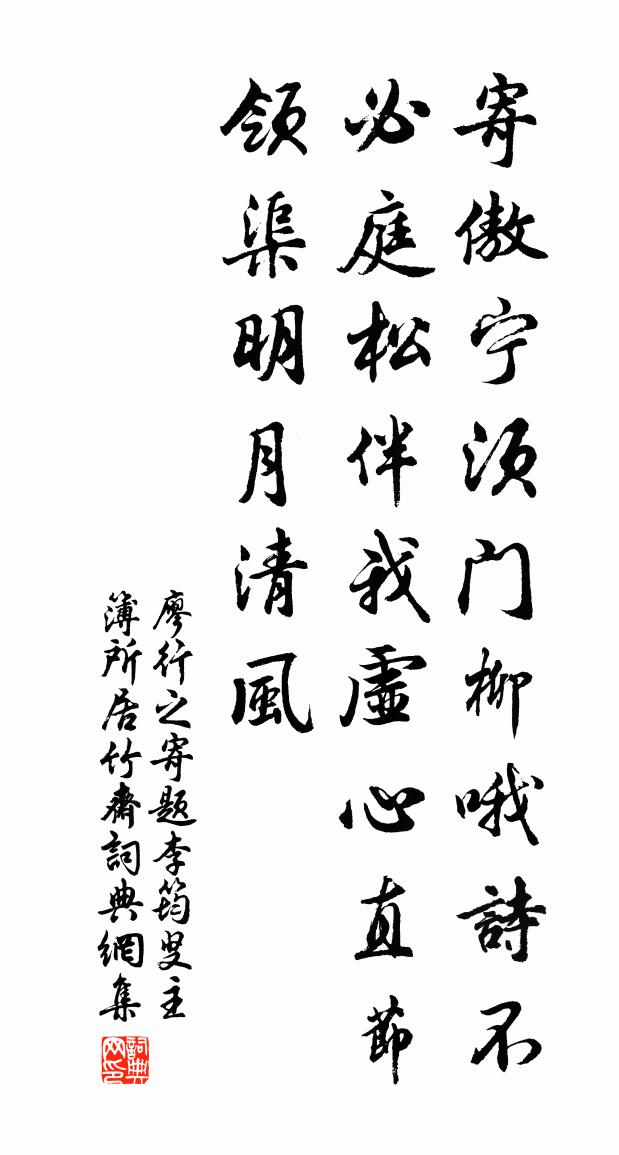 寄傲宁須门柳哦詩不
必庭松伴我虛心直節
領渠明月清風
廖行之寄題李筠叟主
簿所居竹齋詞典網集
詞典网印